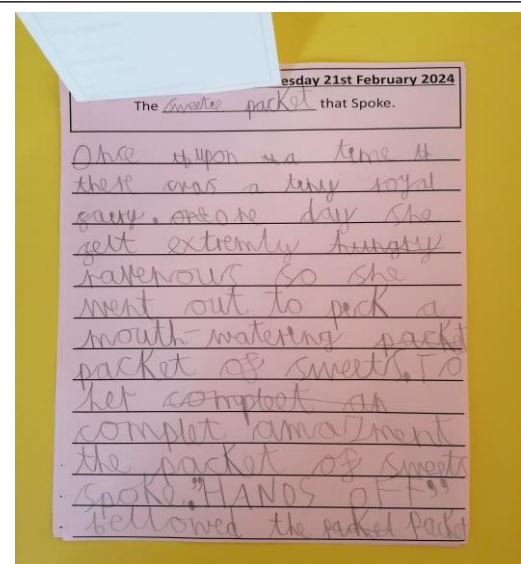 esday 21st February 2024
The sweetie packet that Spoke.
Once upon a time
there was a tiny royal
fairy. one day she
felt extremly hungry
ravenous so she
went out to pick a
mouth-watering packet
packet of sweets. To
her compleet an
complet amazment
the packet of sweets
spoke."HANDS OFF"
bellowed the packet Packet